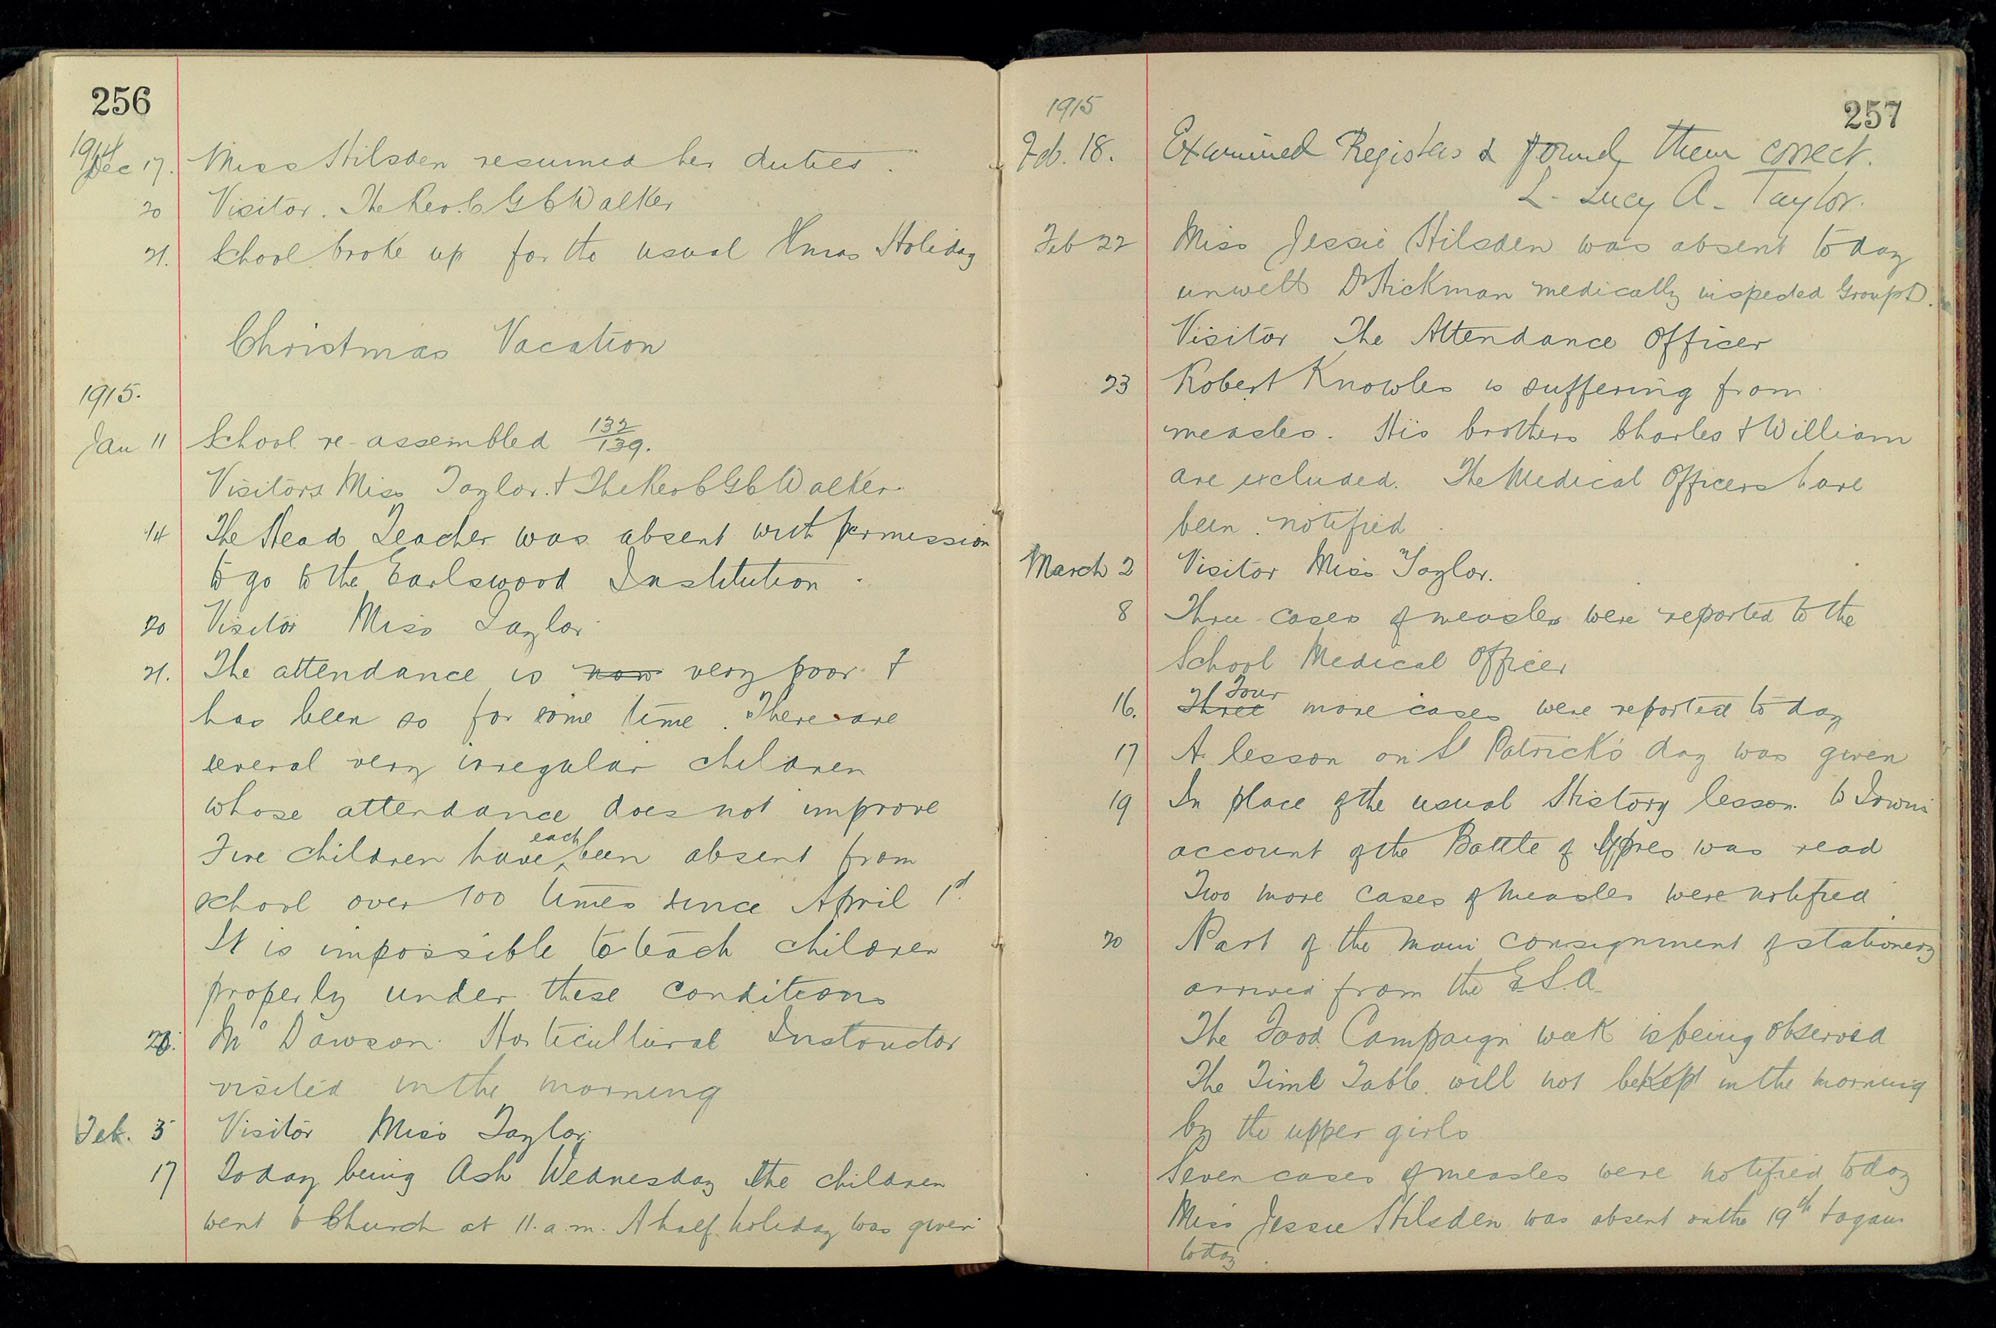 256
1914
Dec 17. Miss Hilsden resumed her duties.
20 Visitor. The Rev. C G C Walker
21. School broke up for the usual Xmas Holiday
Christmas Vacation
1915.
Jan 11 School re-assembled 132/139.
Visitors Miss Taylor. + The Rev C G C Walker.
14 The Head Teacher was absent with permission
to go to the Earlswood Institution.
20 Visitor Miss Taylor
21. The attendance is now very poor. +
has been so for some time. There are
several very irregular children
whose attendance does not improve
Five children have each been absent from
school over 100 times since April 1st.
It is impossible to teach children
properly under these conditions
Mr Dawson. Horticultural Instructor
visited in the morning
Feb. 5 Visitor Miss Taylor.
17 Today being Ash Wednesday the children
went to Church at 11. a.m. A half holiday was given
257
1915
Feb. 18. Examined Registers & found them correct.
L. Lucy A. Taylor.
Feb 22 Miss Jessie Hilsden was absent today
unwell Dr Hickman medically inspected Group D.
Visitor The Attendance Officer
23 Robert Knowles is suffering from
measles. His brothers Charles + William
are excluded. The Medical Officers have
been notified.
March 2 Visitor Miss Taylor.
8 Three cases of measles were reported to the
School Medical Officer
16. Three Four more cases were reported today
17 A lesson on St Patrick's day was given
19 In place of the usual History lesson to
account of the Battle of Ypres was read
Two more cases of measles were notified
20 Part of the main consignment of stationery
arrived from the E.S.A.
The Food Campaign week is being observed
The Time Table will not be kept in the morning
by the upper girls
Seven cases of measles were notified today
Miss Jessie Hilsden was absent on the 19th + again
today.